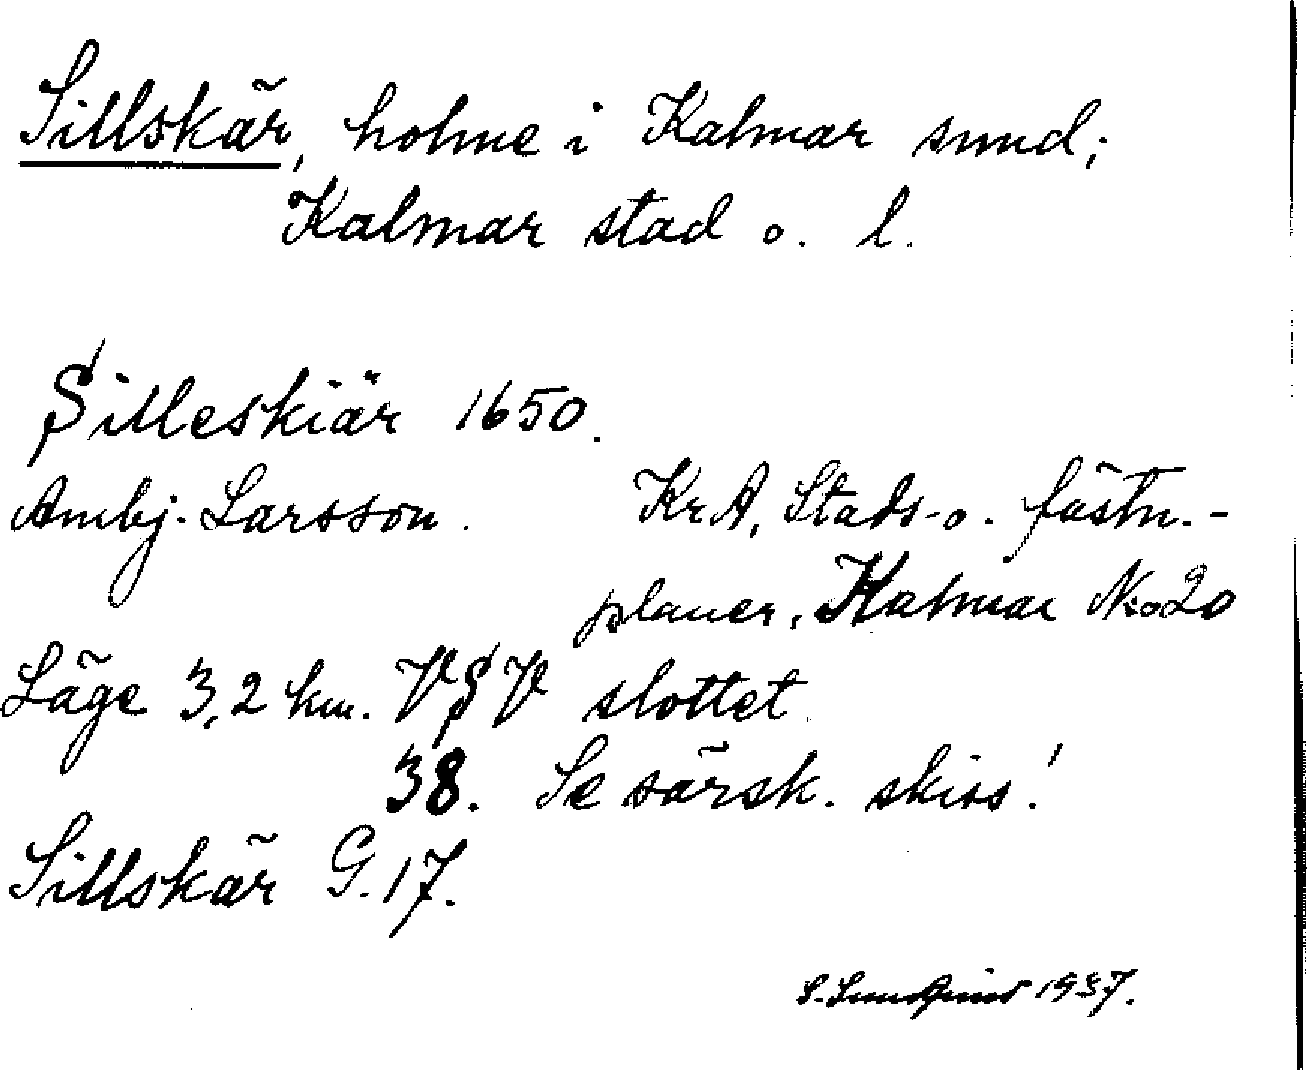 Sillskär, holme i Kalmar sund;
Kalmar stad o. l.
Silleskiär 1650.
Ambj. Larsson. KrA, Stads- o. fästn.-
planer, Kalmar No 20
Läge 3,2 km. VSV slottet
38. Se särsk. skiss!
Sillskär G. 17.
S. Sundquist 1937.